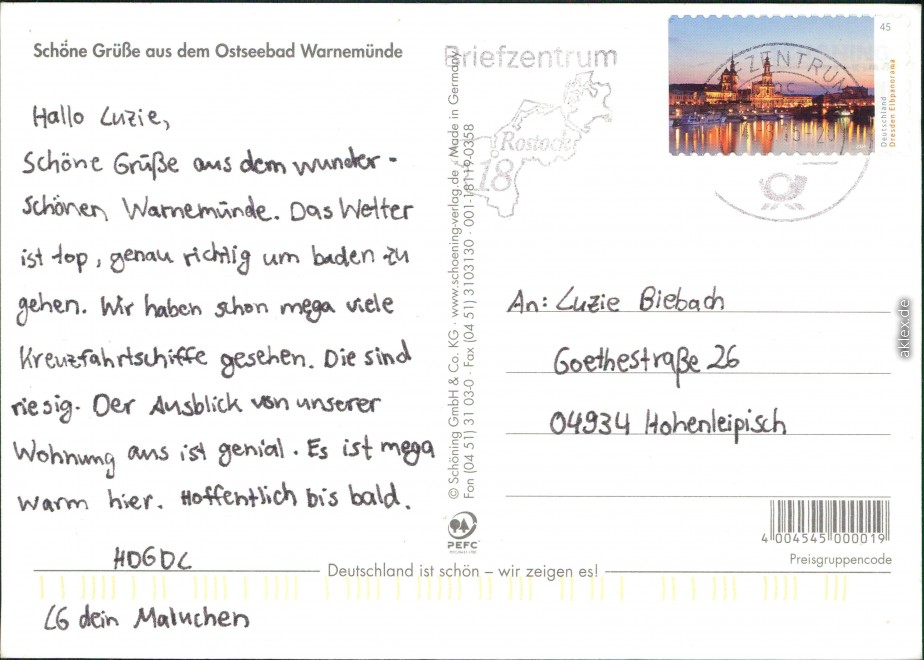 Schöne Grüße aus dem Ostseebad Warnemünde
Hallo Luzie,
Schöne Grüße aus dem wunder-
schönen Warnemünde. Das Wetter
ist top, genau richtig um baden zu
gehen. Wir haben schon mega viele
Kreuzfahrtschiffe gesehen. Die sind
riesig. Der Ausblick von unserer
Wohnung aus ist genial. Es ist mega
warm hier. Hoffentlich bis bald.
HDGDL
LG dein Maluchen
© Schöning GmbH & Co. KG · www.schoening-verlag.de · Made in Germany
Fon (04 51) 31 03-0 · Fax (04 51) 3103130 · 001-18119-0358
PEFC
Briefzentrum
Rostock
18
45
Deutschland
Dresden Elbpanorama
An: Luzie Biebach
Goethestraße 26
04934 Hohenleipisch
4 004545 000019
Preisgruppencode
Deutschland ist schön – wir zeigen es!
aklex.de